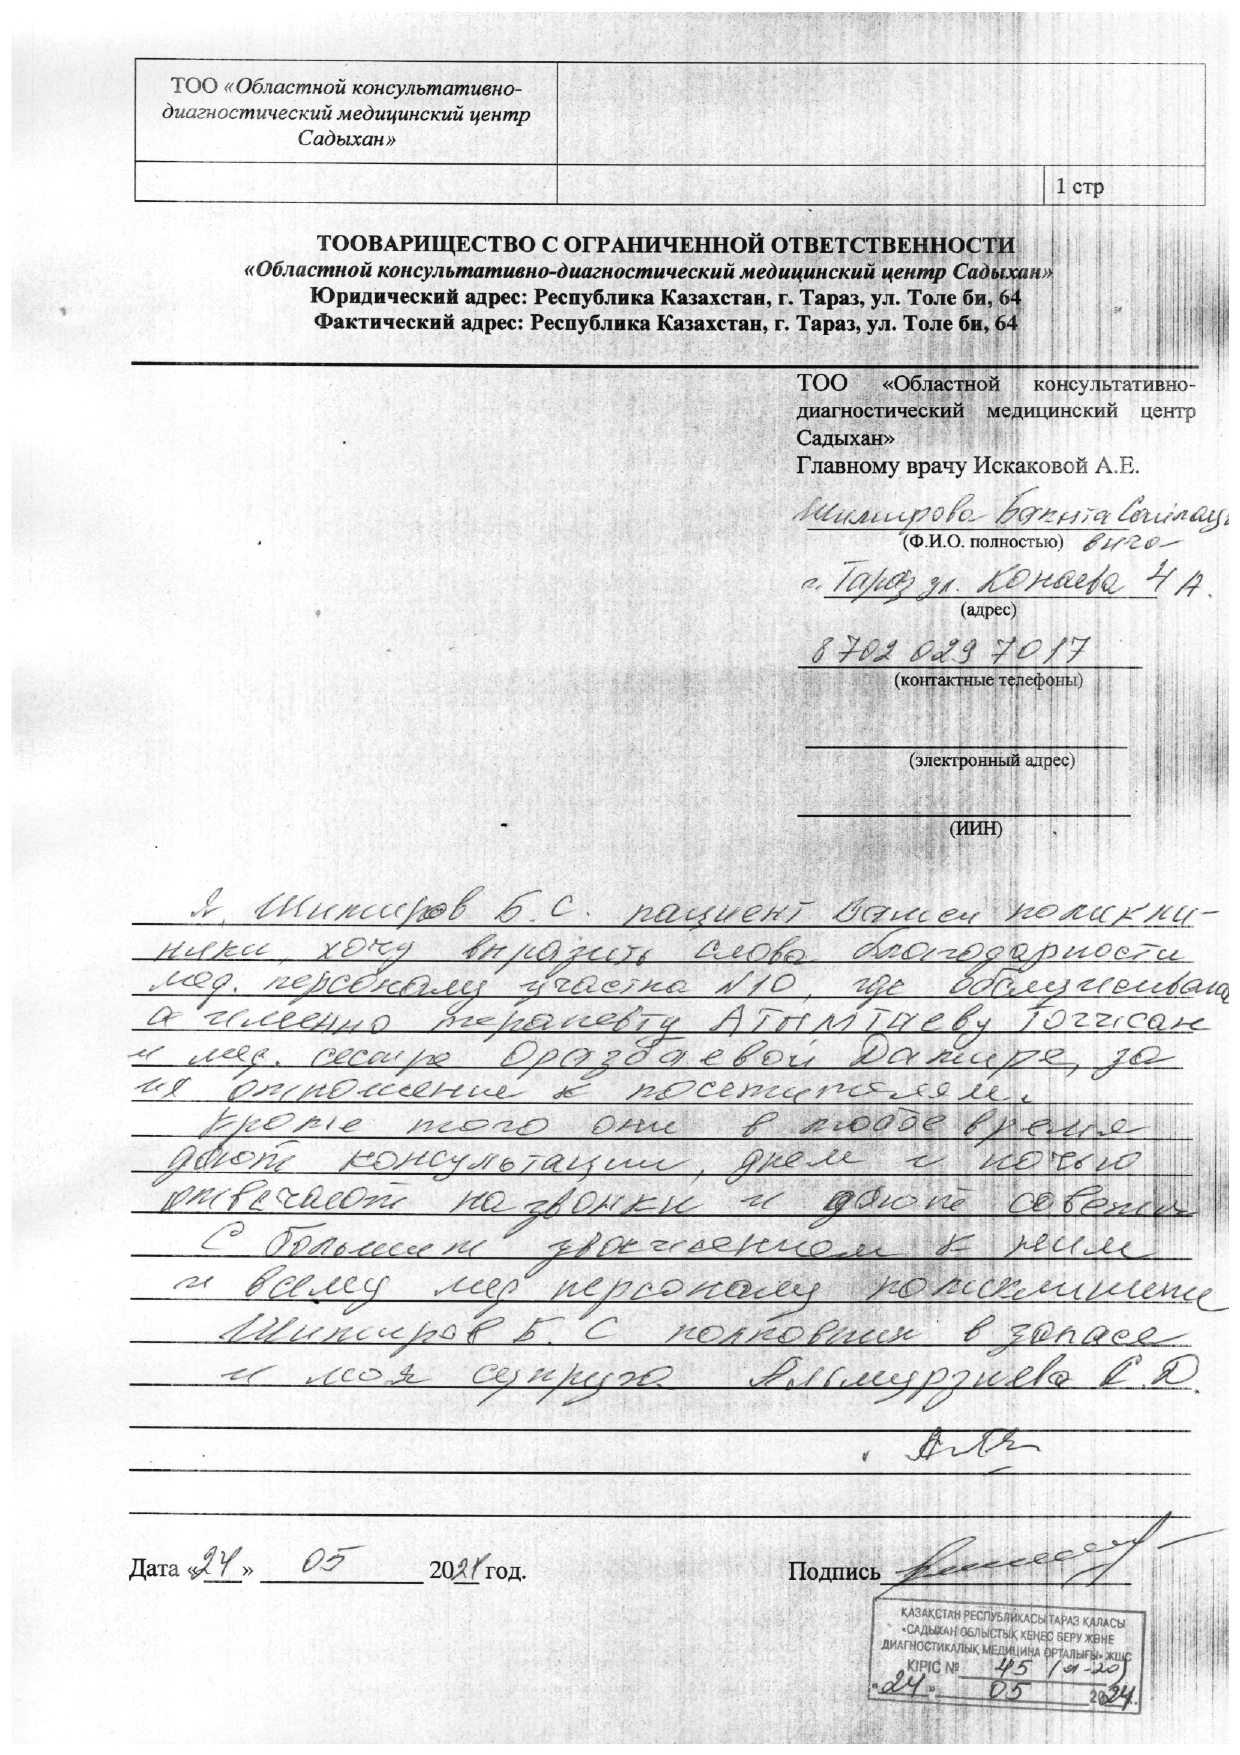 ТОО «Областной консультативно-
диагностический медицинский центр
Садыхан»
1 стр
ТООВАРИЩЕСТВО С ОГРАНИЧЕННОЙ ОТВЕТСТВЕННОСТИ
«Областной консультативно-диагностический медицинский центр Садыхан»
Юридический адрес: Республика Казахстан, г. Тараз, ул. Толе би, 64
Фактический адрес: Республика Казахстан, г. Тараз, ул. Толе би, 64
ТОО «Областной консультативно-
диагностический медицинский центр
Садыхан»
Главному врачу Искаковой А.Е.
(Ф.И.О. полностью) вича
г. Тараз ул. Конаева 4 А.
(адрес)
8 702 029 7017
(контактные телефоны)
(электронный адрес)
(ИИН)
Я, Шитиров Б.С. пациент Вашей поликли-
ники, хочу выразить слова благодарности
мед. персоналу участка №10, где
а именно терапевту
и мед. сестре Оразбаевой Дамире, за
их отношение к посетителям.
Кроме того они в любое время
дают консультации, днем и ночью
отвечают на звонки и дают советы
С большим уважением к ним
и всему мед персоналу поликлиники
Шитиров Б. С полковник в запасе
и моя супруга Альмурзиева К.Д.
Дата «24» 05 2024 год.
Подпись
ҚАЗАҚСТАН РЕСПУБЛИКАСЫ ТАРАЗ ҚАЛАСЫ
«САДЫХАН ОБЛЫСТЫҚ КЕҢЕС БЕРУ ЖӘНЕ
ДИАГНОСТИКАЛЫҚ МЕДИЦИНА ОРТАЛЫҒЫ» ЖШС
КІРІС № 45 (01-20)
«24» 05 2024.